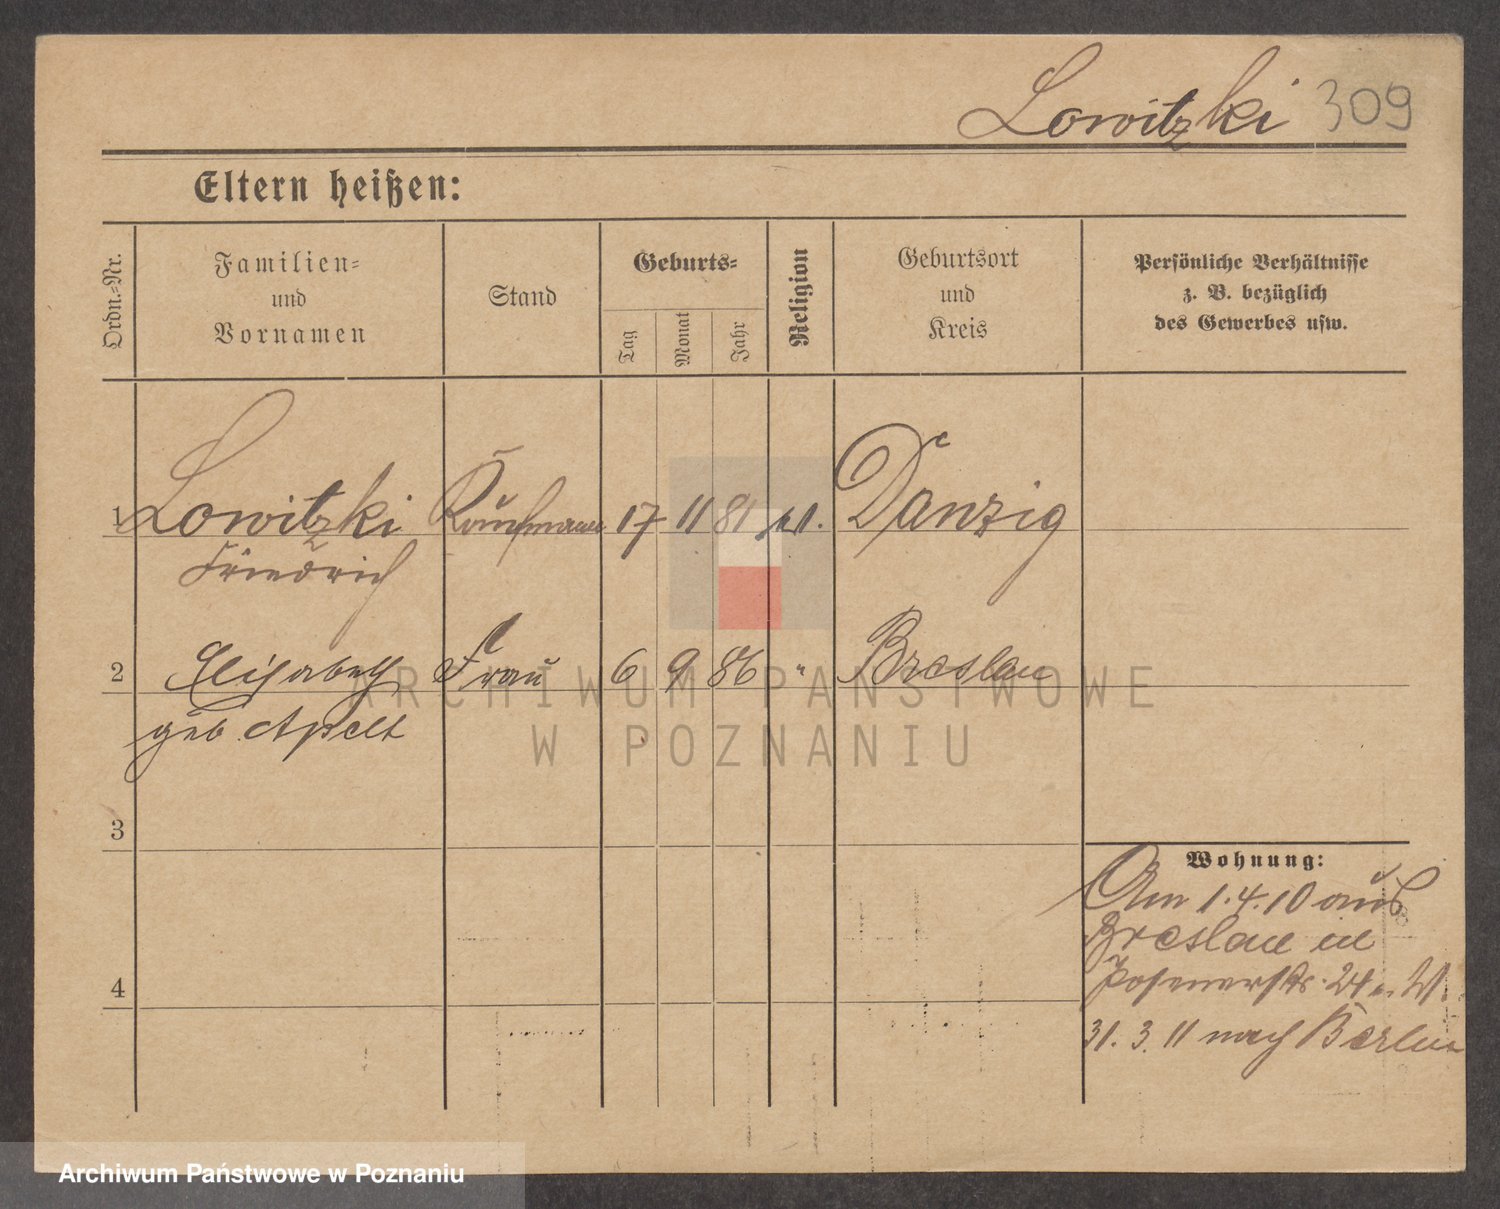 Lowitzki 309
Eltern heißen:
Ordn.-Nr.
Familien-
und
Vornamen
Stand
Geburts-
Tag
Monat
Jahr
Religion
Geburtsort
und
Kreis
Persönliche Verhältnisse
z. B. bezüglich
des Gewerbes usw.
1 Lowitzki Kaufmann 17 11 81 Danzig
Friedrich
2 Elisabeth Frau 6 9 86 " Breslau
geb. Apelt
3
Wohnung:
Am 1.4.10 aus
Breslau in
Posenerstr. 24
4
31. 3. 11 nach Berlin
ARCHIWUM PAŃSTWOWE
W POZNANIU
Archiwum Państwowe w Poznaniu